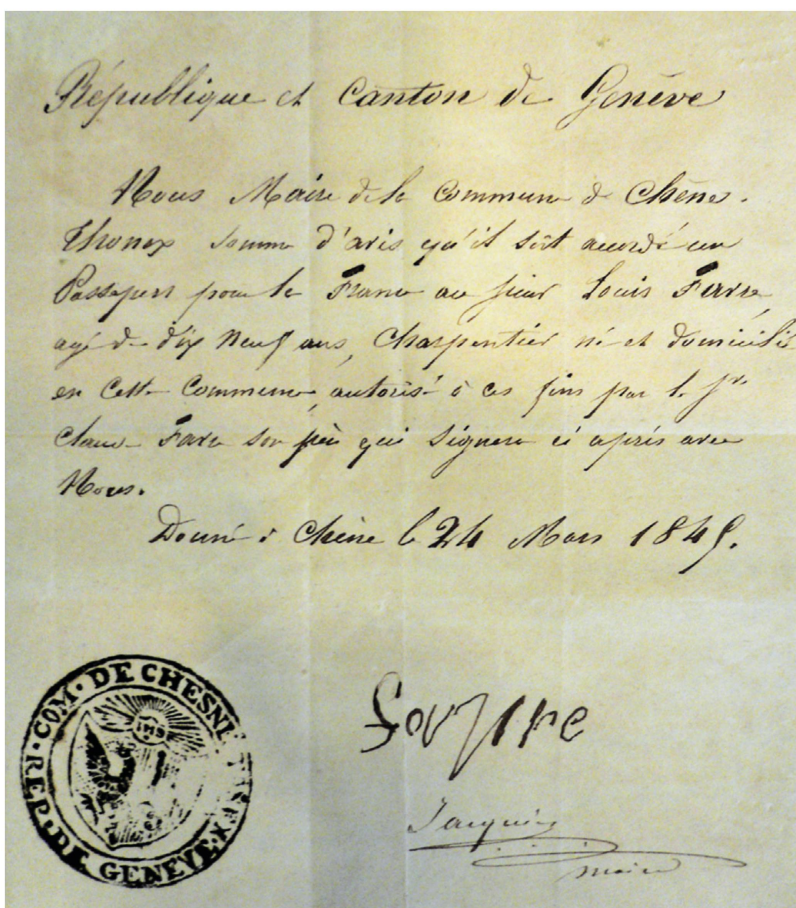 République et Canton de Genève
Nous Maire de la Commune de Chêne-
Thonex somme d'avis qu'il soit accordé un
Passeport pour la France au sieur Louis Favre,
agé de dix neuf ans, Charpentier né et domicilié
en Cette Commune, autorisé à ces fins par le Sr
Claude Favre son père qui signera ci après avec
Nous.
Donné à Chêne le 24 Mars 1845.
COM. DE CHESNE
REP. DE GENEVE
IHS
maire